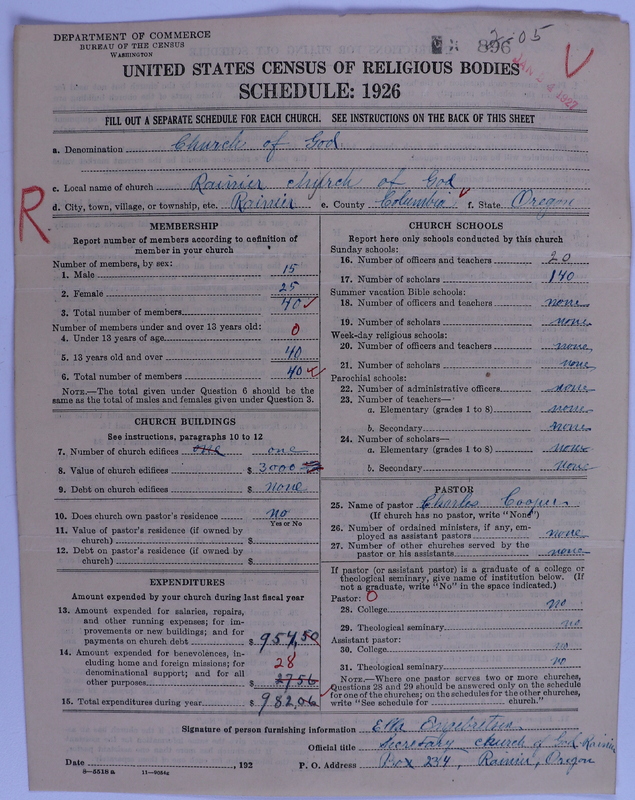 DEPARTMENT OF COMMERCE
BUREAU OF THE CENSUS
WASHINGTON
896
2-05
UNITED STATES CENSUS OF RELIGIOUS BODIES
SCHEDULE: 1926
FILL OUT A SEPARATE SCHEDULE FOR EACH CHURCH. SEE INSTRUCTIONS ON THE BACK OF THIS SHEET
a. Denomination Church of God
c. Local name of church Rainier church of God
R
d. City, town, village, or township, etc. Rainier e. County Columbia f. State Oregon
MEMBERSHIP
Report number of members according to definition of
member in your church
Number of members, by sex:
1. Male 15
2. Female 25
3. Total number of members 40
Number of members under and over 13 years old:
4. Under 13 years of age 0
5. 13 years old and over 40
6. Total number of members 40
NOTE.—The total given under Question 6 should be the
same as the total of males and females given under Question 3.
CHURCH BUILDINGS
See instructions, paragraphs 10 to 12
7. Number of church edifices one one
8. Value of church edifices $ 3000
9. Debt on church edifices $ none
10. Does church own pastor's residence no
Yes or No
11. Value of pastor's residence (if owned by
church) $
12. Debt on pastor's residence (if owned by
church) $
EXPENDITURES
Amount expended by your church during last fiscal year
13. Amount expended for salaries, repairs,
and other running expenses; for im-
provements or new buildings; and for
payments on church debt $ 954.50
14. Amount expended for benevolences, in-
cluding home and foreign missions; for
denominational support; and for all
other purposes 28
$ 27 56
15. Total expenditures during year $ 982.06
CHURCH SCHOOLS
Report here only schools conducted by this church
Sunday schools:
16. Number of officers and teachers 20
17. Number of scholars 140
Summer vacation Bible schools:
18. Number of officers and teachers none
19. Number of scholars none
Week-day religious schools:
20. Number of officers and teachers none
21. Number of scholars none
Parochial schools:
22. Number of administrative officers none
23. Number of teachers—
a. Elementary (grades 1 to 8) none
b. Secondary none
24. Number of scholars—
a. Elementary (grades 1 to 8) none
b. Secondary none
PASTOR
25. Name of pastor Charles Cooper
(If church has no pastor, write "None")
26. Number of ordained ministers, if any, em-
ployed as assistant pastors none
27. Number of other churches served by the
pastor or his assistants none
If pastor (or assistant pastor) is a graduate of a college or
theological seminary, give name of institution below. (If
not a graduate, write "No" in the space indicated.)
Pastor: 0
28. College no
29. Theological seminary no
Assistant pastor:
30. College no
31. Theological seminary no
NOTE.—Where one pastor serves two or more churches,
Questions 28 and 29 should be answered only on the schedule
for one of the churches; on the schedules for the other churches,
write "See schedule for church."
Signature of person furnishing information Ella
Official title Secretary church of God Rainier
Date , 192 P. O. Address Box 234, Rainier, Oregon
8-5518 a 11-9054